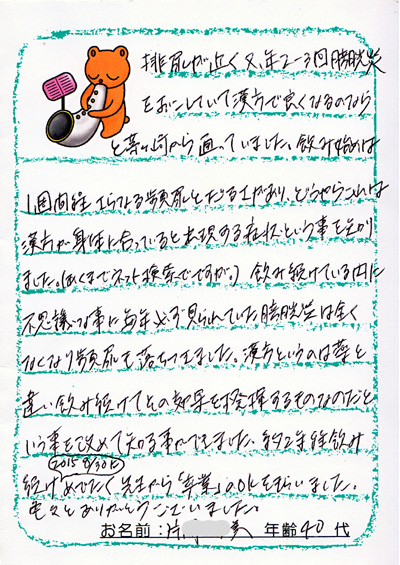 排尿が近く又、年2〜3回膀胱炎
をおこしていて漢方で良くなるのなら
と茅ヶ崎から通っていました。飲み始めは
1週間程 いらゆる頻尿と だる上があり、どうやらこれは
漢方が身体に合っていると出現する症状という事を知り
ました。(あくまでネット検索でですが。) 飲み続けている内に
不思議な事に毎年必ず見られていた膀胱炎は全く
なくなり頻尿も落ちつきました。漢方というのは薬と
違い飲み続けてその効果を発揮するものなのだと
いう事を改めて知る事ができました。約2年程飲み
2015 9/30に
続けめでたく先生から「卒業」のOKをもらいました。
色々とありがとうございました。
お名前: 片 美 年齢40代